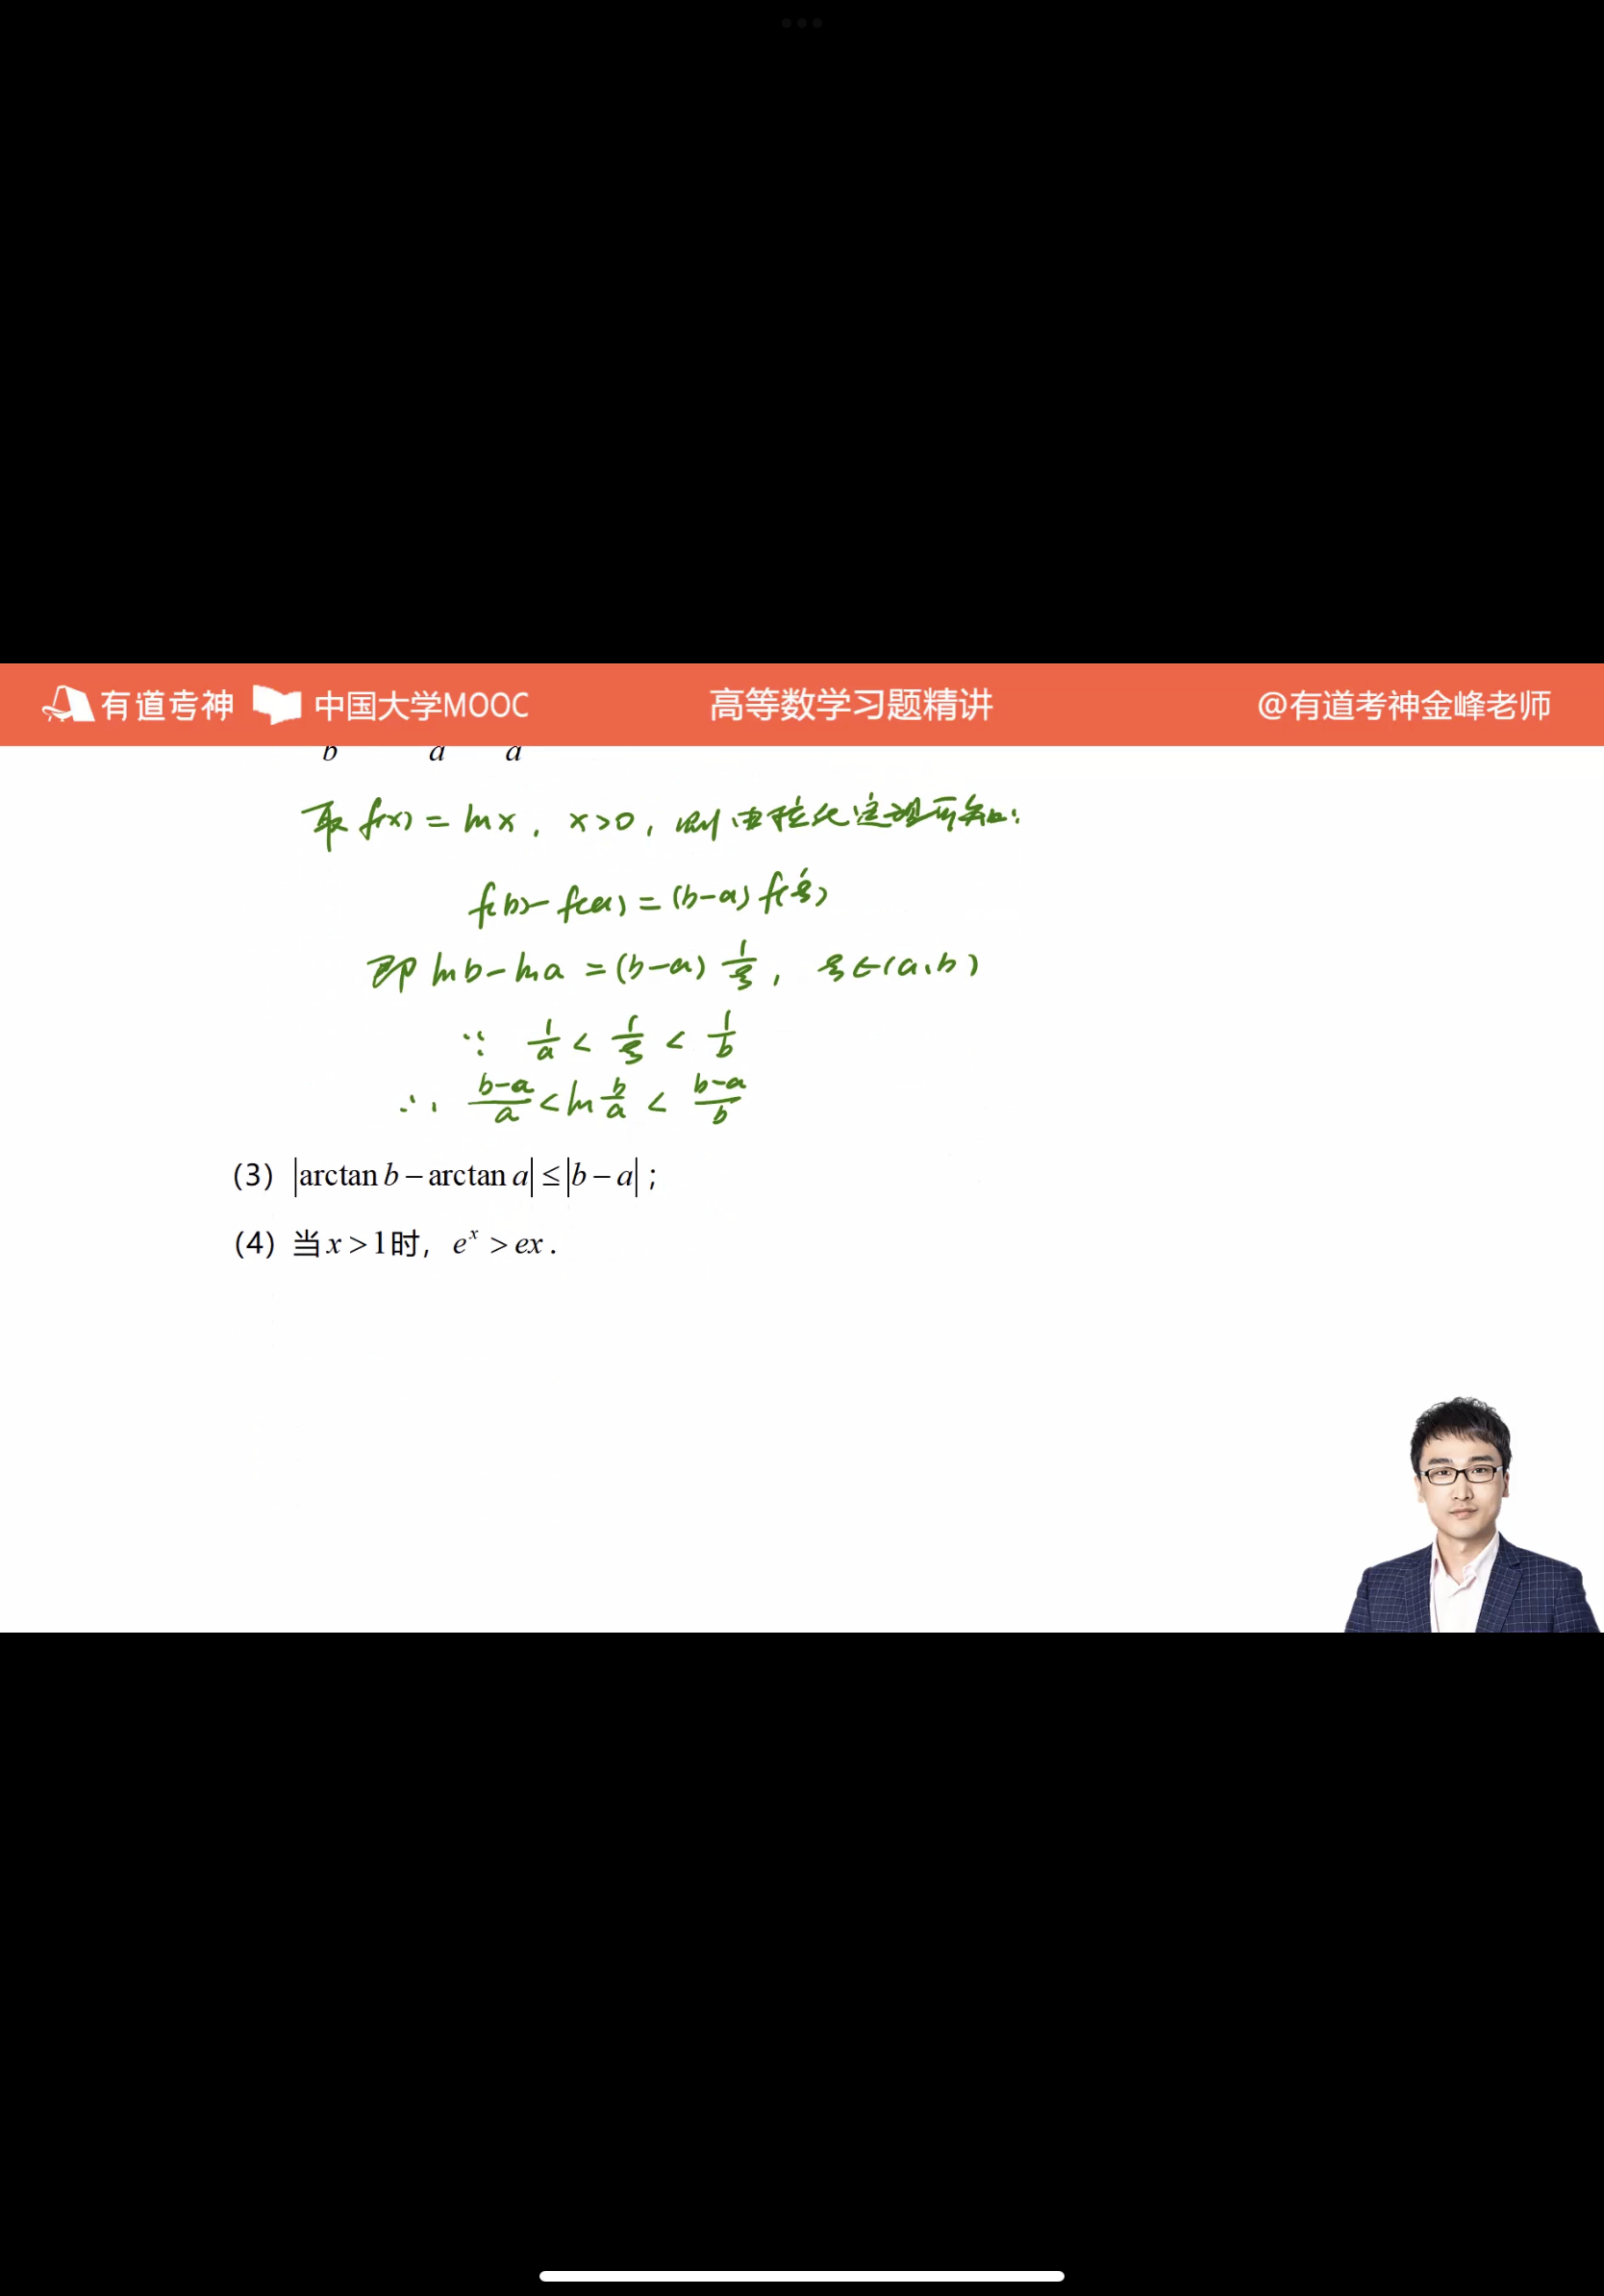 有道考神 中国大学MOOC 高等数学习题精讲 @有道考神金峰老师
b a a
取 f(x) = ln x , x>0 , 则由拉氏定理可知:
f(b) - f(a) = (b-a) f'(ξ)
即 ln b - ln a = (b-a) 1/ξ , ξ∈(a,b)
∵ 1/a < 1/ξ < 1/b
∴ (b-a)/a < ln b/a < (b-a)/b
(3) |arctan b - arctan a| ≤ |b - a| ;
(4) 当 x > 1 时, e^x > ex .